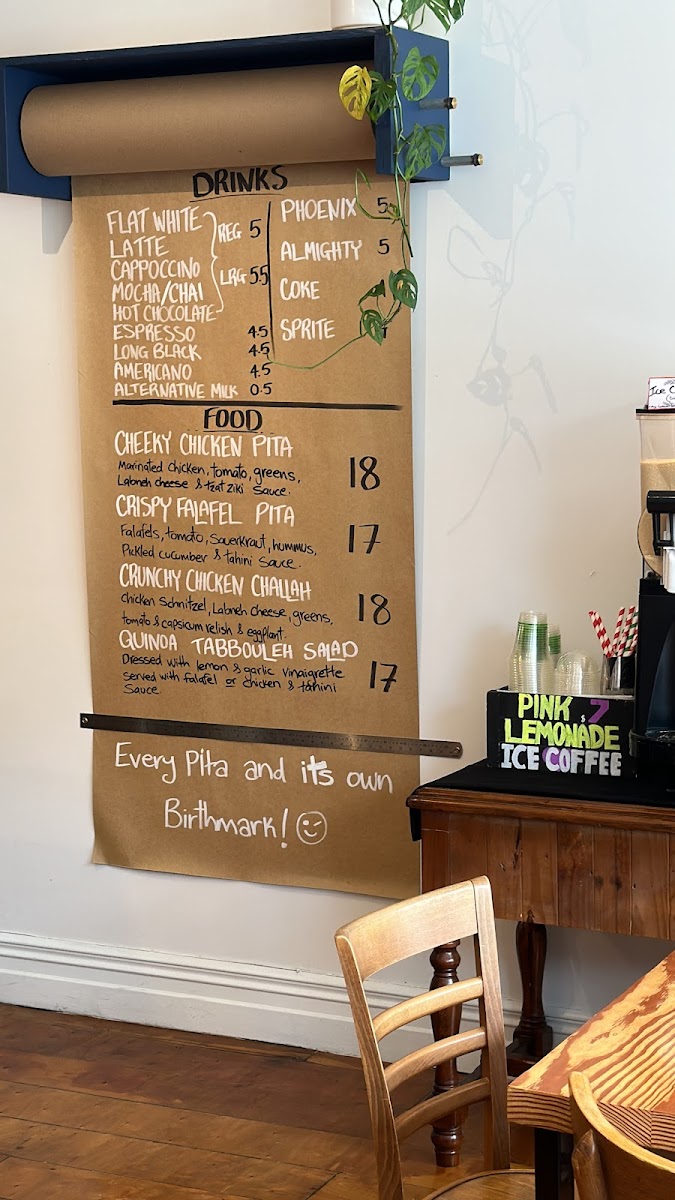 DRINKS
FLAT WHITE
LATTE
CAPPOCCINO
MOCHA/CHAI
HOT CHOCOLATE
REG 5
LRG 5.5
ESPRESSO 4.5
LONG BLACK 4.5
AMERICANO 4.5
ALTERNATIVE MILK 0.5
PHOENIX 5
ALMIGHTY 5
COKE
SPRITE
FOOD
CHEEKY CHICKEN PITA 18
Marinated chicken, tomato, greens,
Labneh cheese & tzatziki sauce.
CRISPY FALAFEL PITA 17
Falafels, tomato, Sauerkraut, hummus,
Pickled cucumber & tahini sauce.
CRUNCHY CHICKEN CHALLAH 18
Chicken Schnitzel, Labneh cheese, greens,
tomato & capsicum relish & eggplant.
QUINOA TABBOULEH SALAD 17
Dressed with lemon & garlic vinaigrette
served with falafel or chicken & tahini
Sauce
Every Pita and its own
Birthmark!
PINK $7
LEMONADE
ICE COFFEE
Ice